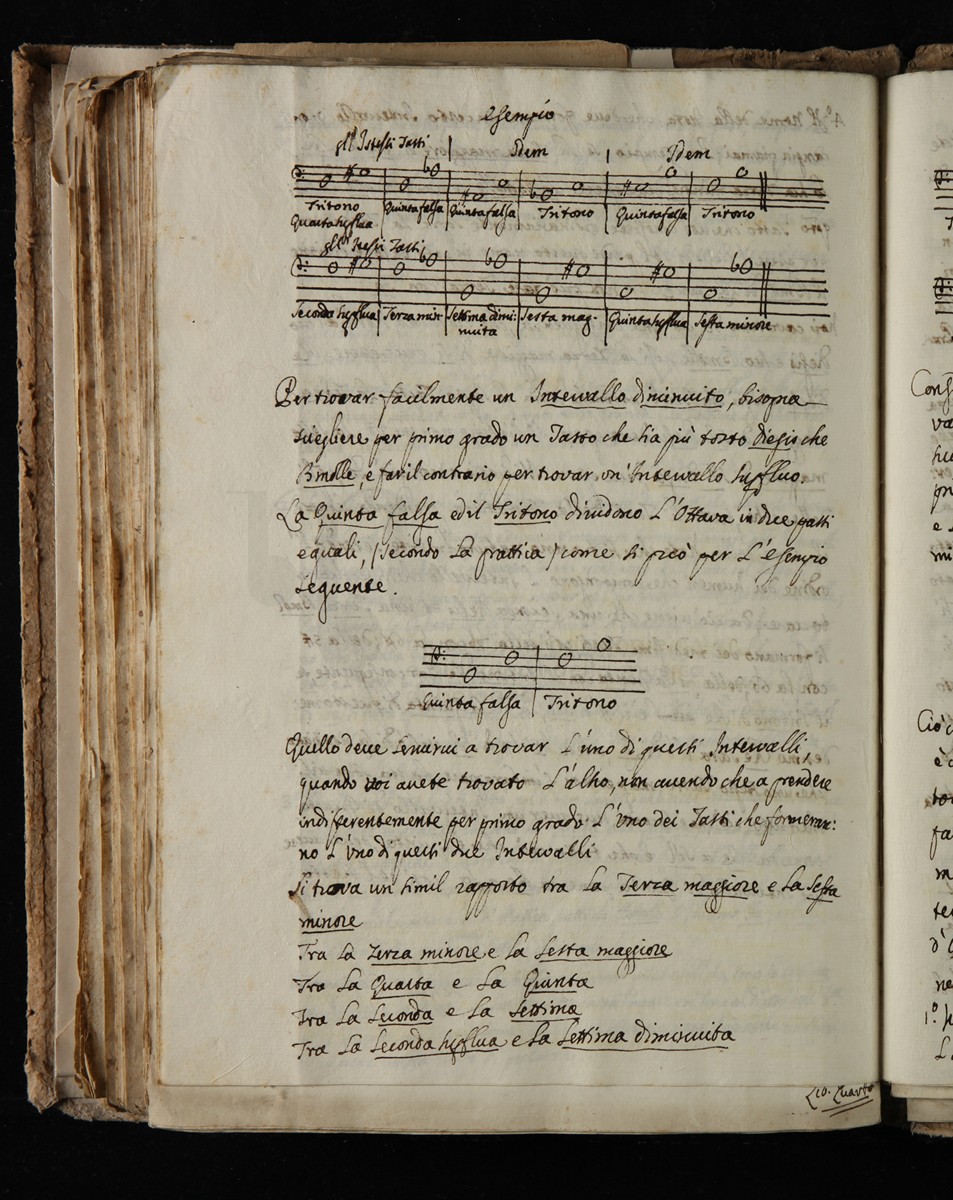 Esempio
gl'Istessi Tasti Idem Idem
Tritono Quintafalsa Quintafalsa Tritono Quintafalsa Tritono
Quarta sup:flua
gl'Istessi Tasti
Seconda sup:flua Terza min. Settima dimi: Sesta mag. Quinta sup:flua Sesta minore
nuita
Per trovar facilmente un Intervallo diminuito, bisogna
sciegliere per primo grado un Tasto che hà più tosto diesis che
Bmolle, e far il contrario per trovar un' Intervallo sup:fluo.
La Quinta falsa ed il Tritono dividono L'Ottava in due parti
eguali, (secondo La prattica) come si può per L'esempio
seguente.
Quinta falsa Tritono
Quello deve servirvi a trovar L'uno di questi Intervalli,
quando voi avete trovato L'altro, non avendo che a prendere
indifferentemente per primo grado L'uno dei Tasti che formeran:
no L'uno di questi due Intervalli
Si trova un simil rapporto tra La Terza maggiore e La Sesta
minore
Tra La Terza minore e La Sesta maggiore
Tra La Quarta e La Quinta
Tra La Seconda e La Settima
Tra La Seconda sup:flua e La Settima diminuita
Quarto